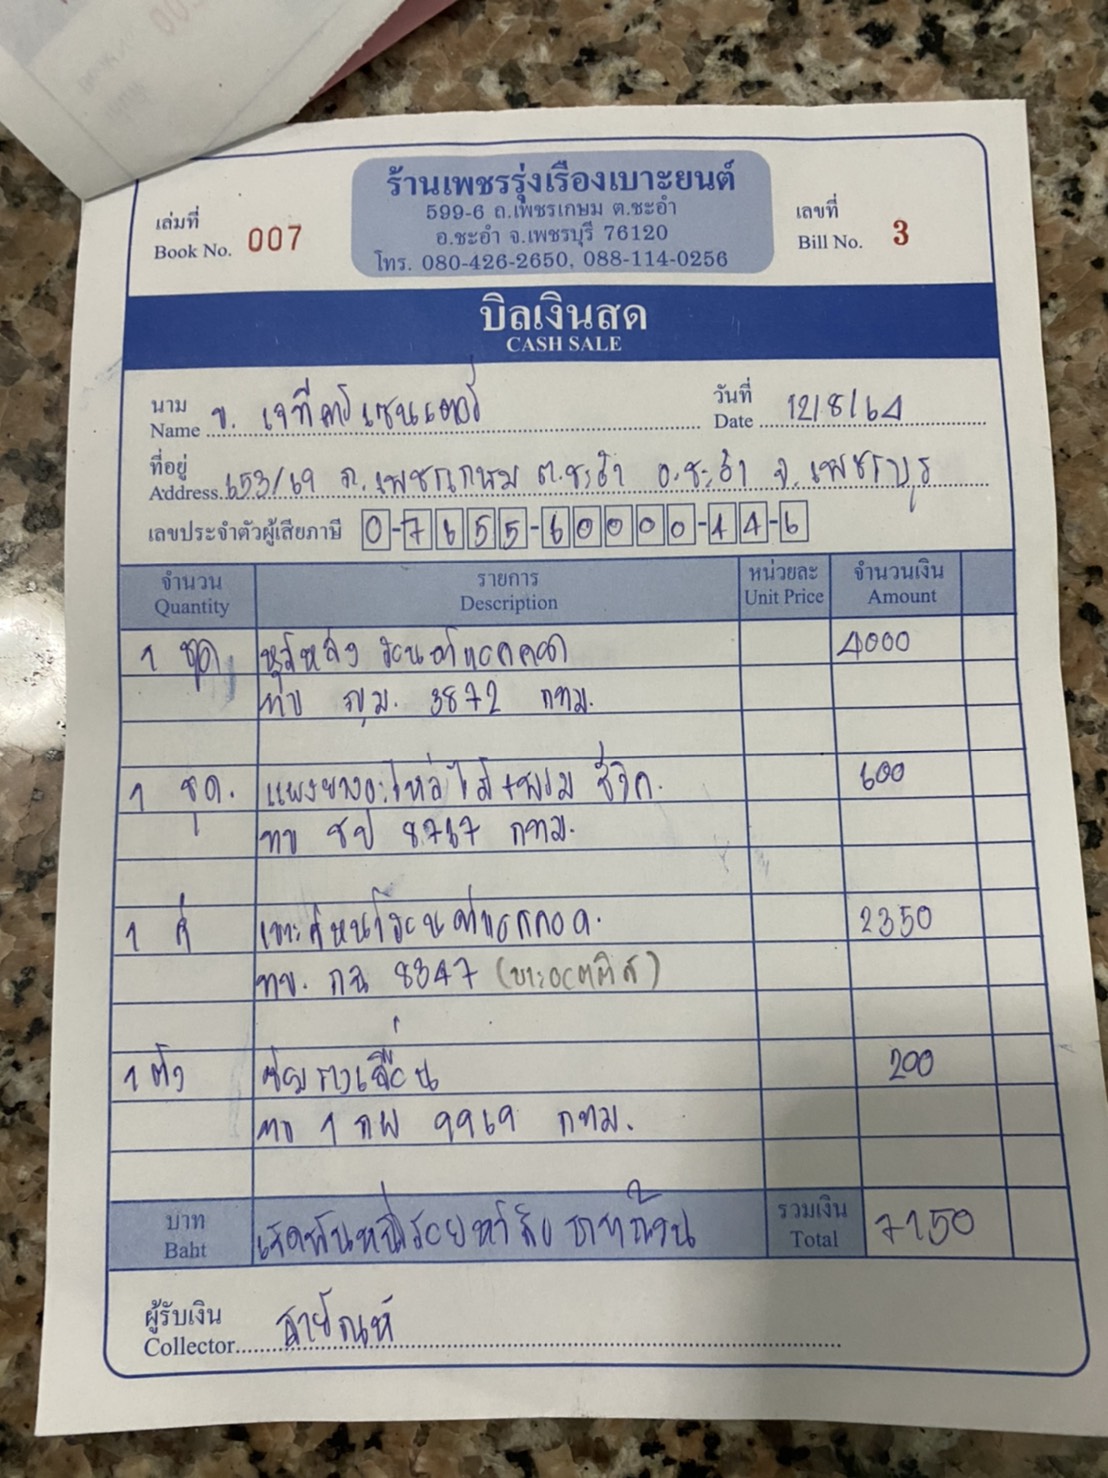 ร้านเพชรรุ่งเรืองเบาะยนต์
599-6 ถ.เพชรเกษม ต.ชะอำ
อ.ชะอำ จ.เพชรบุรี 76120
โทร. 080-426-2650, 088-114-0256
เล่มที่
Book No. 007
เลขที่
Bill No. 3
บิลเงินสด
CASH SALE
นาม
Name บ. เจที คาร์ เซนเตอร์
วันที่
Date 12/8/64
ที่อยู่
Address. 653/69 ถ.เพชรเกษม ต.ชะอำ อ.ชะอำ จ.เพชรบุรี
เลขประจำตัวผู้เสียภาษี 0-7655-60000-44-6
จำนวน รายการ หน่วยละ จำนวนเงิน
Quantity Description Unit Price Amount
1 ชุด 4000
3872 กทม.
1 ชุด. แผงยางอะไหล่ไม้+พรม ซีวิค. 600
ทบ ชป 8767 กทม.
1 คู่ 2350
ทบ. กฉ 8347
1 ตัว 200
ทบ 1 กผ 9969 กทม.
บาท
Baht เจ็ดพันหนึ่งร้อยห้าสิบบาทถ้วน
รวมเงิน
Total 7150
ผู้รับเงิน
Collector สายัณห์